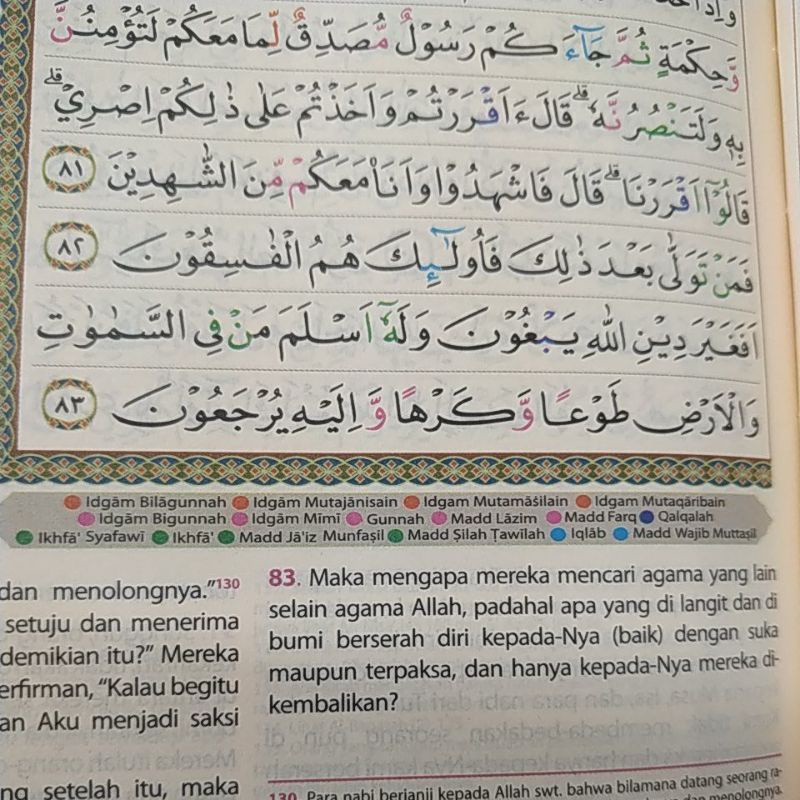 وَّحِكْمَةٍ ثُمَّ جَاۤءَ كُمْ رَسُوْلٌ مُّصَدِّقٌ لِّمَا مَعَكُمْ لَتُؤْمِنُنَّ
بِهٖ وَلَتَنْصُرُنَّهٗ ۗ قَالَ ءَاَقْرَرْتُمْ وَاَخَذْتُمْ عَلٰى ذٰلِكُمْ اِصْرِيْ ۗ
قَالُوْٓا اَقْرَرْنَا ۗ قَالَ فَاشْهَدُوْا وَاَنَا۠ مَعَكُمْ مِّنَ الشّٰهِدِيْنَ ٨١
فَمَنْ تَوَلّٰى بَعْدَ ذٰلِكَ فَاُولٰۤىِٕكَ هُمُ الْفٰسِقُوْنَ ٨٢
اَفَغَيْرَ دِيْنِ اللّٰهِ يَبْغُوْنَ وَلَهٗٓ اَسْلَمَ مَنْ فِى السَّمٰوٰتِ
وَالْاَرْضِ طَوْعًا وَّكَرْهًا وَّاِلَيْهِ يُرْجَعُوْنَ ٨٣
Idgām Bilāgunnah Idgām Mutajānisain Idgam Mutamāṡilain Idgam Mutaqāribain
Idgām Bigunnah Idgām Mīmī Gunnah Madd Lāzim Madd Farq Qalqalah
Ikhfā' Syafawī Ikhfā' Madd Jā'iz Munfaṣil Madd Ṣilah Ṭawīlah Iqlāb Madd Wajib Muttaṣil
dan menolongnya."130
setuju dan menerima
demikian itu?" Mereka
erfirman, "Kalau begitu
an Aku menjadi saksi
ng setelah itu, maka
83. Maka mengapa mereka mencari agama yang lain
selain agama Allah, padahal apa yang di langit dan di
bumi berserah diri kepada-Nya (baik) dengan suka
maupun terpaksa, dan hanya kepada-Nya mereka di-
kembalikan?
130 Para nabi berjanji kepada Allah swt. bahwa bilamana datang seorang ra-
dan menolongnya.